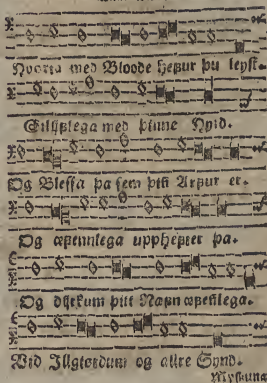 Dyrkeypta med Bloode hefur þu leyst.
Eilijflega med þinne Nád.
Og Blessa þa sem þitt Arfur er.
Og æfennlega upphefier þa.
Og dyrkum þitt Nafn æfenlega.
Vid Jllgiordum og allre Synd.
Myskuna